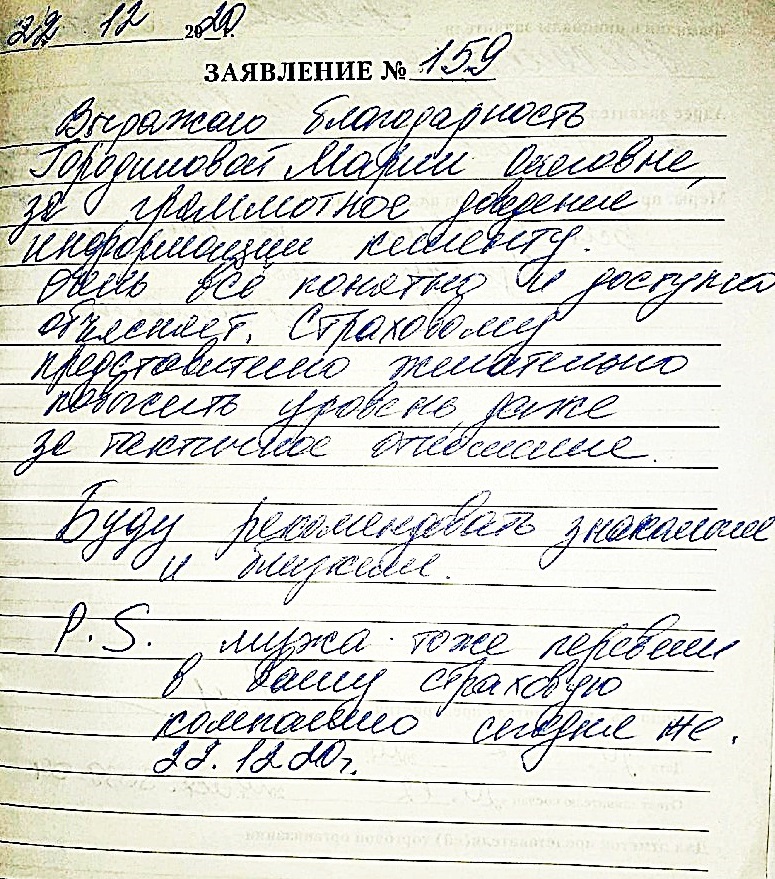 22 12 2020г.
ЗАЯВЛЕНИЕ № 159
Выражаю благодарность
Городиловой Марии Олеговне,
за граммотное доведение
информации клиенту.
Очень всё понятно и доступно
объясняет. Страховому
представителю желательно
повысить уровень даже
за тактичное отношение.
Буду рекомендовать знакомым
и близким.
P.S. мужа тоже перевели
в вашу страховую
компанию сегодня же.
22.12.20г.